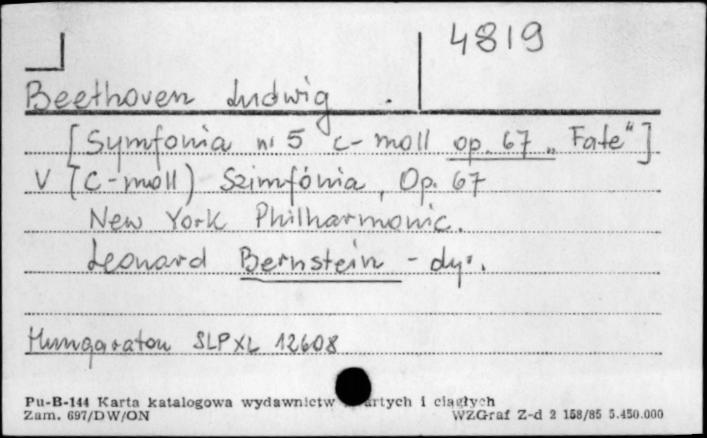 4819
Beethoven Ludwig
[Symfonia nr 5 c-moll op. 67 „Fate"]
V [C-moll) Szimfónia, Op. 67
New York Philharmonic.
Leonard Bernstein - dyr.
Hungaroton SLPXL 12608
Pu-B-144 Karta katalogowa wydawnictw i ciągłych
Zam. 697/DW/ON WZGraf Z-d 2 158/85 5.450.000